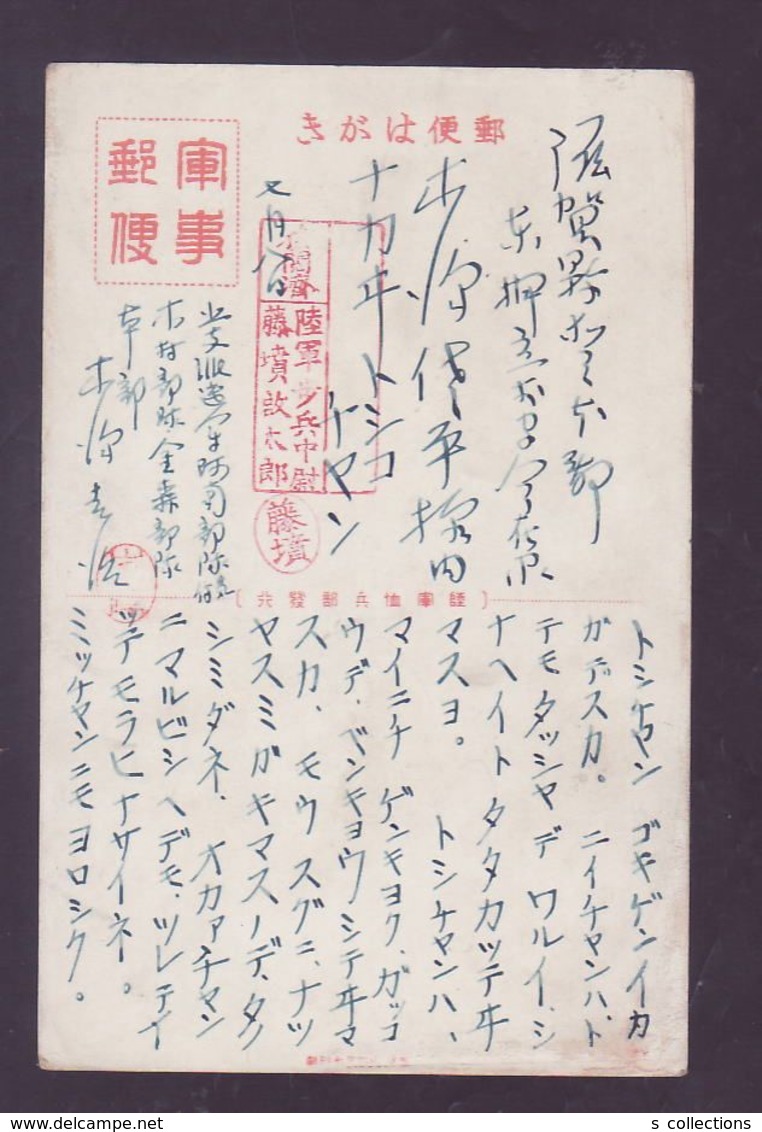 郵便はがき
軍事
郵便
滋賀縣犬上郡
東押立村字今在家
ナカヰトシコ
チヤン
七月八日
検閲済
陸軍歩兵中尉
藤墳改太郎
藤墳
北支派遣軍
木村部隊金森部隊
本部
陸軍恤兵部發行
トシチヤン ゴキゲンイカ
ガデスカ。 ニイチヤンハ、ト
テモタッシヤデワルイ、シ
ナヘイトタタカツテヰ
マスヨ。 トシチヤンハ、
マイニチゲンキヨク、ガッコ
ウデ、ベンキョウシテヰマ
スカ、モウスグニ、ナツ
ヤスミガキマスノデ、タノ
シミダネ、オカアチヤン
ニマルビシヘデモ、ツレテイ
ッテモラヒナサイネ。
ミッチヤンニモヨロシク。
s collections